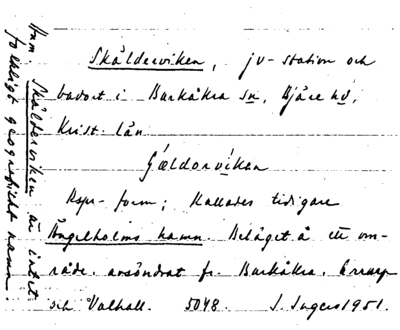 Skälderviken, jv-station och
badort i Barkåkra sn, Bjäre hd,
Krist. län
Rspr-form; Kallades tidigare
Ängelholms hamn. Beläget å ett om-
råde, avsöndrat fr. Barkåkra, Errarp
och Valhall. 5048. I. Ingers 1951.
Nam. Skälderviken är intet
folkligt geografiskt namn.